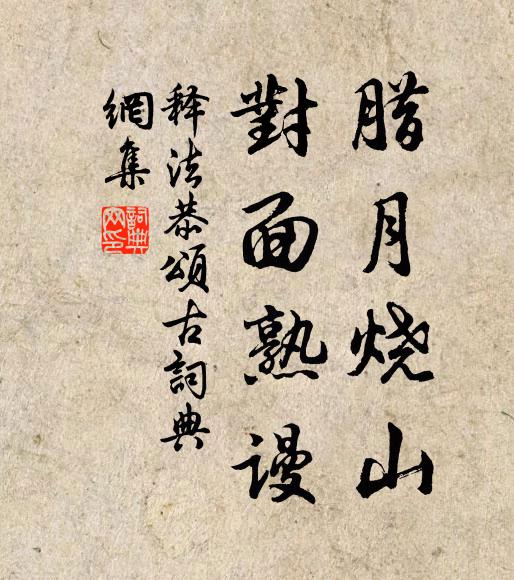 腊月烧山
對面熟謾
释法恭頌古詞典
網集
詞典
网印